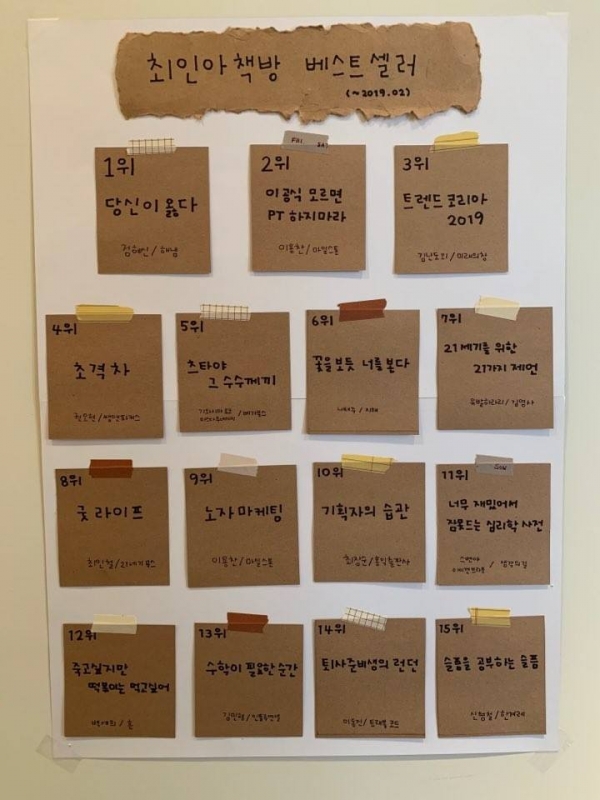 최인아책방 베스트셀러
(~2019.02)
1위
당신이 옳다
정혜신/해냄
FRI
2위
이공식 모르면
PT 하지마라
이용찬/마일스톤
3위
트렌드코리아
2019
김난도외/미래의창
4위
초격차
권오현/쌤앤파커스
5위
츠타야
그 수수께끼
/베가북스
6위
꽃을보듯 너를본다
나태주/지혜
7위
21세기를 위한
21가지 제언
유발하라리/김영사
8위
굿 라이프
최인철/21세기북스
9위
노자마케팅
이용찬/마일스톤
10위
기획자의 습관
최장순/홍익출판사
SUN
11위
너무 재밌어서
잠못드는 심리학 사전
12위
죽고싶지만
떡볶이는 먹고싶어
백세희/흔
13위
수학이 필요한 순간
김민형/인플루엔셜
14위
퇴사준비생의 런던
이동진/트래블코드
15위
슬픔을 공부하는 슬픔
신형철/한겨레